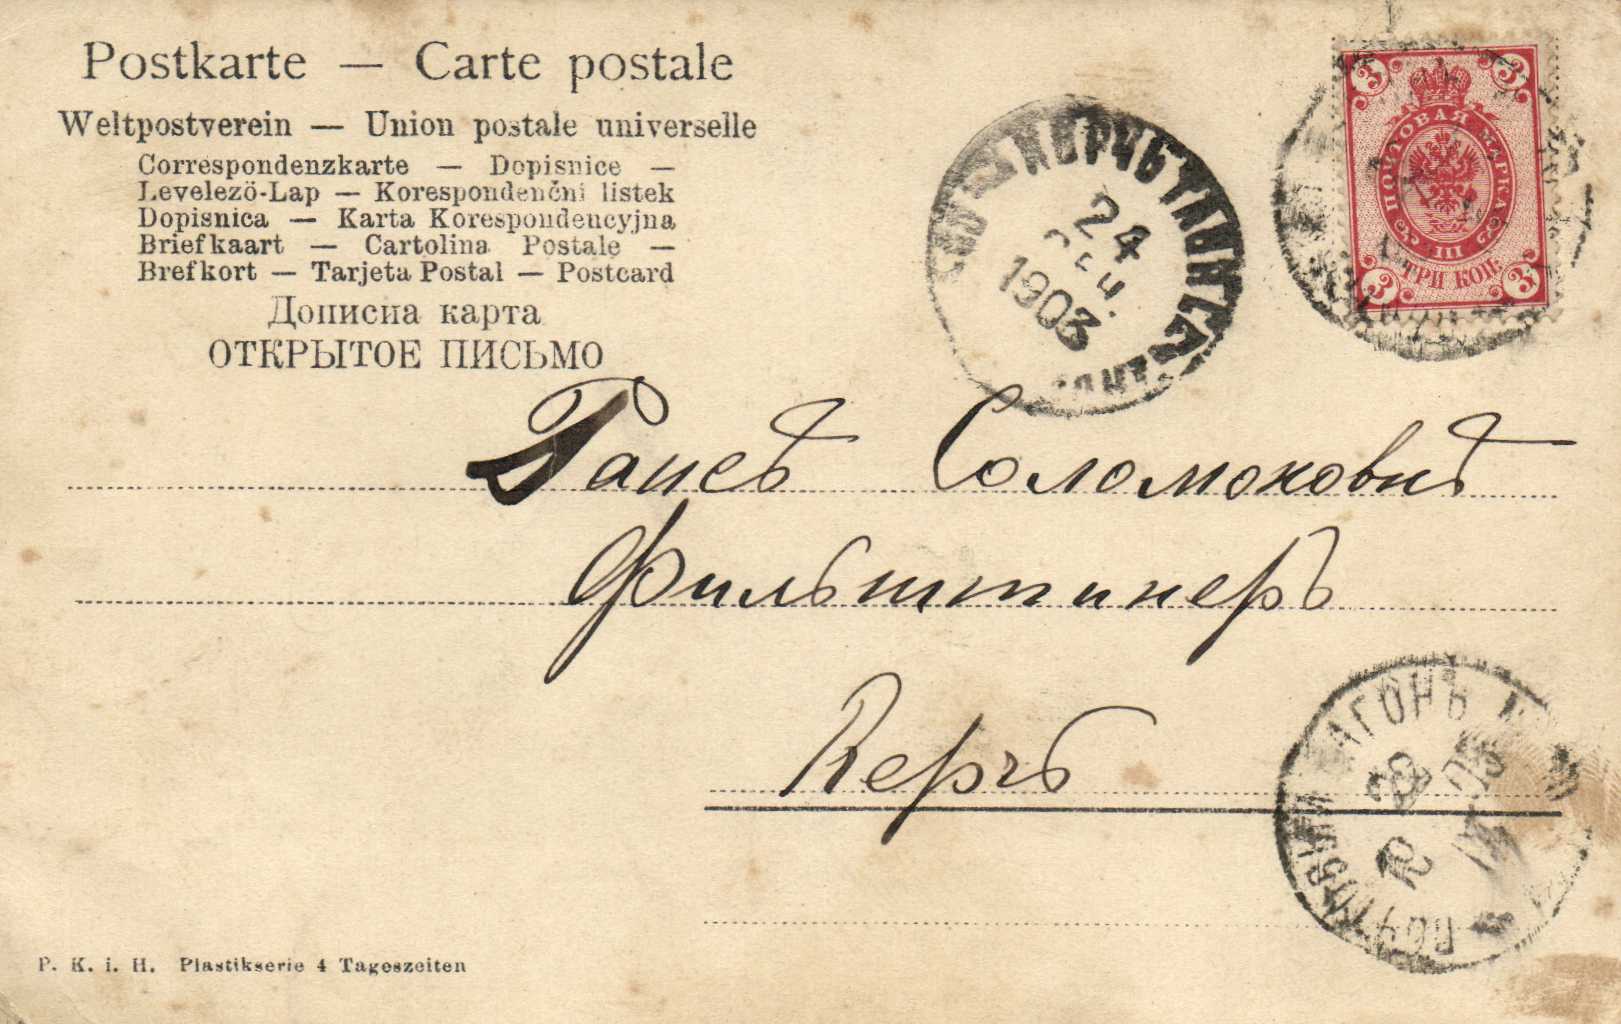 Postkarte — Carte postale
Weltpostverein — Union postale universelle
Correspondenzkarte — Dopisnice —
Levelező-Lap — Korespondenční listek
Dopisnica — Karta Korespondencyjna
Briefkaart — Cartolina Postale —
Brefkort — Tarjeta Postal — Postcard
Дописна карта
ОТКРЫТОЕ ПИСЬМО
КЕРЧЬ
24
1903
3 3
ПОЧТОВАЯ МАРКА
III
ТРИ КОП.
3 3
Саломоновнѣ
Фильштинеръ
Керчь
ПОЧТОВЫЙ ВАГОНЪ
22
P. K. i. H. Plastikserie 4 Tageszeiten